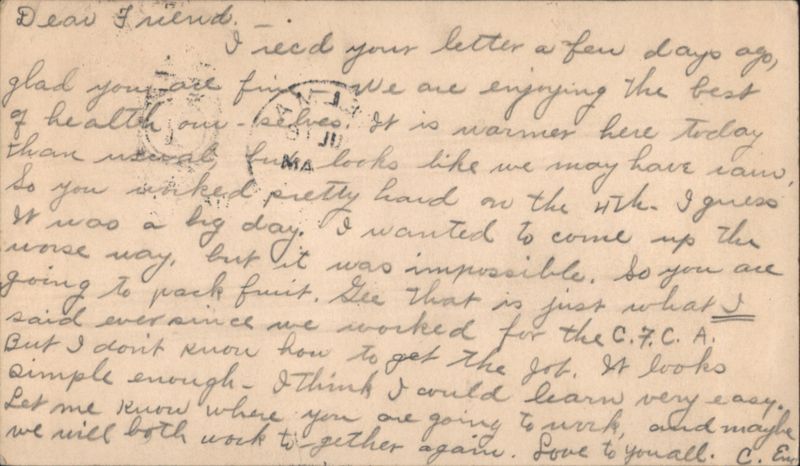 Dear Friend. -
I recd your letter a few days ago,
glad you are fine - We are enjoying the best
of health our-selves. It is warmer here today
than usual, but looks like we may have rain.
So you worked pretty hard on the 4th - I guess
it was a big day. I wanted to come up the
worse way, but it was impossible. So you are
going to pack fruit. Gee that is just what I
said ever since we worked for the C.F.C.A.
But I don't know how to get the job. It looks
simple enough - I think I could learn very easy.
Let me know where you are going to work, and maybe
we will both work to-gether again. Love to you all. C.
MA